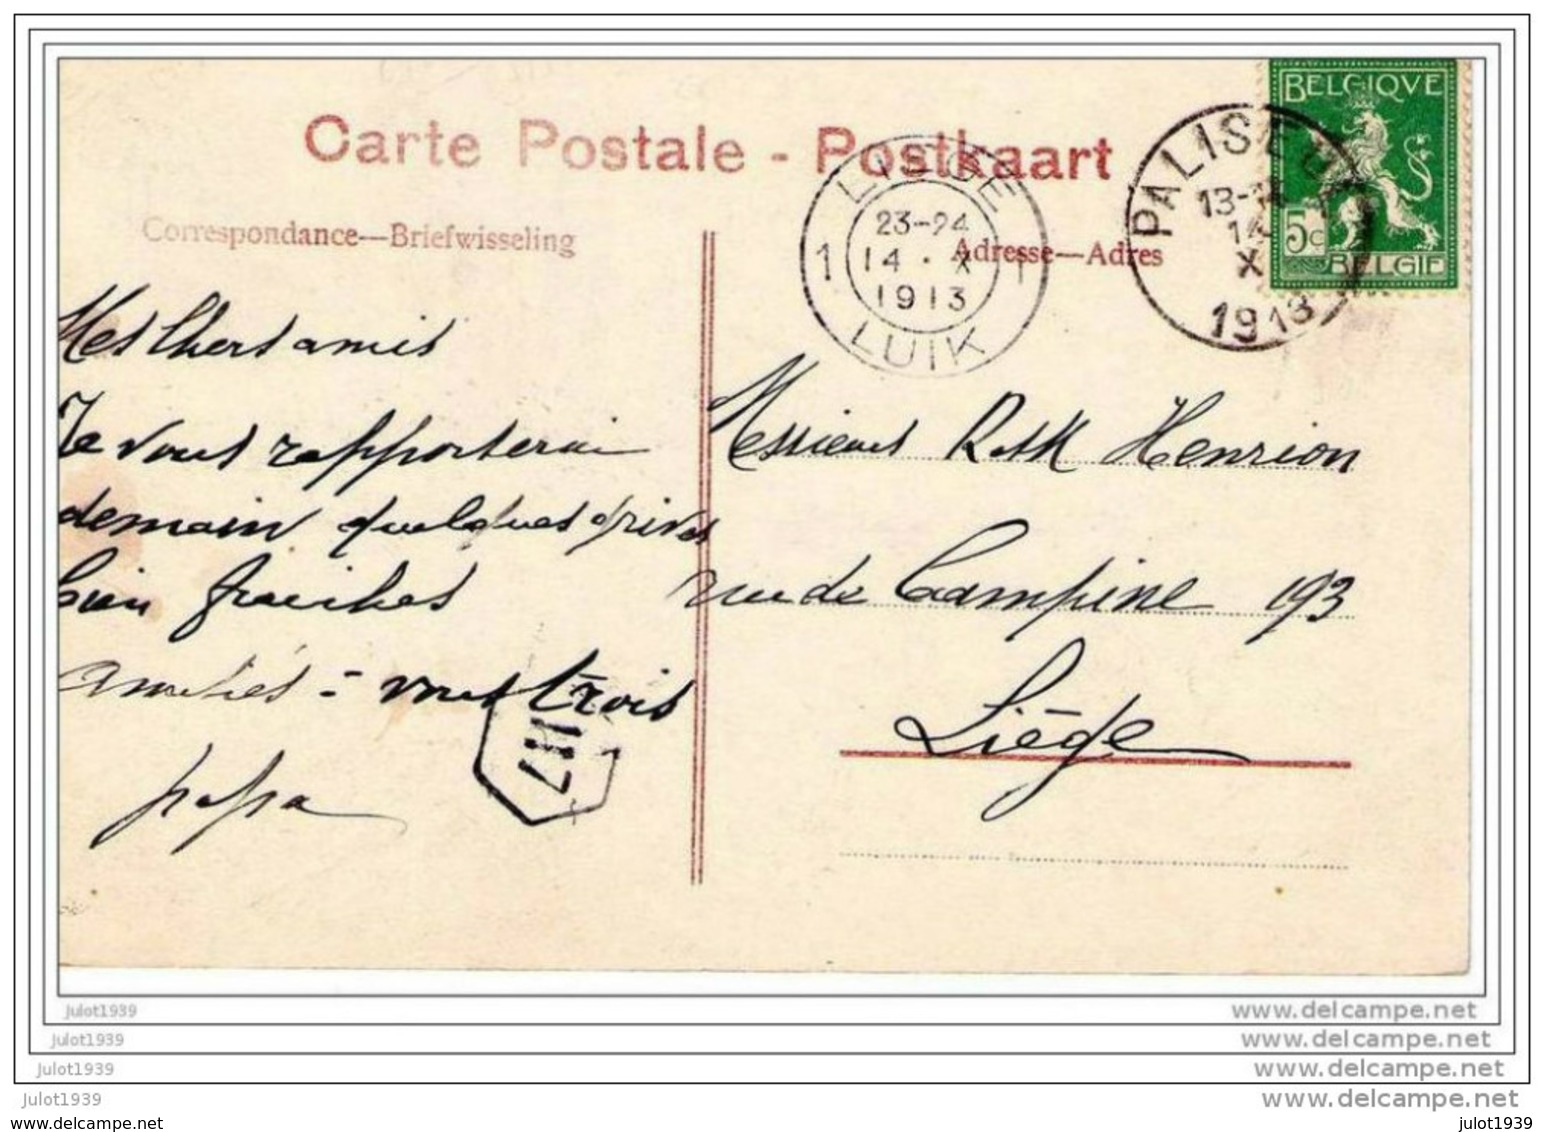 Carte Postale - Postkaart
BELGIQVE
5c
BELGIE
PALISEUL
13-14
14
X
1913
LIEGE
23-24
1 14 · X 1
1913
LUIK
Correspondance—Briefwisseling
Adresse—Adres
Mes Chers amis
Je vous rapporterai
demain quelques grives
bien fraiches
amitiés = vous trois
papa
Messieurs Henrion
rue de Campine 193
Liége
julot1939
www.delcampe.net
julot1939
www.delcampe.net
julot1939
www.delcampe.net
julot1939
www.delcampe.net
www.delcampe.net
julot1939